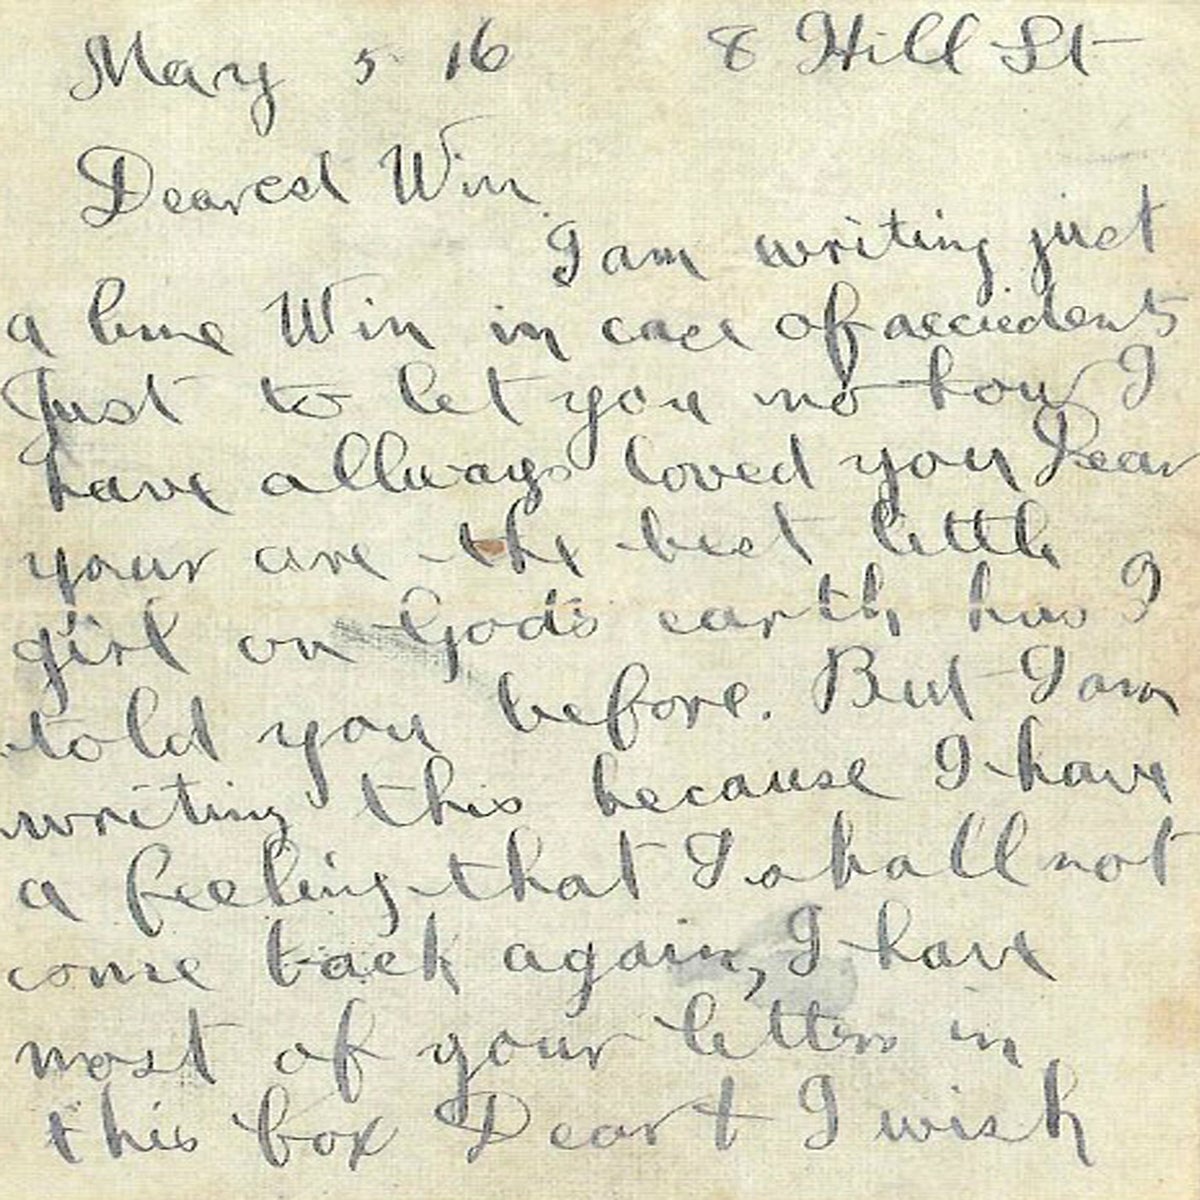 May 5 16 8 Hill St
Dearest Win
I am writing just
a line Win in case of accidents
Just to let you no how I
have allways loved you Dear
your are the best little
girl on God's earth has I
told you before. But I am
writing this because I have
a feeling that I shall not
come back again, I have
most of your letters in
this box Dear + I wish